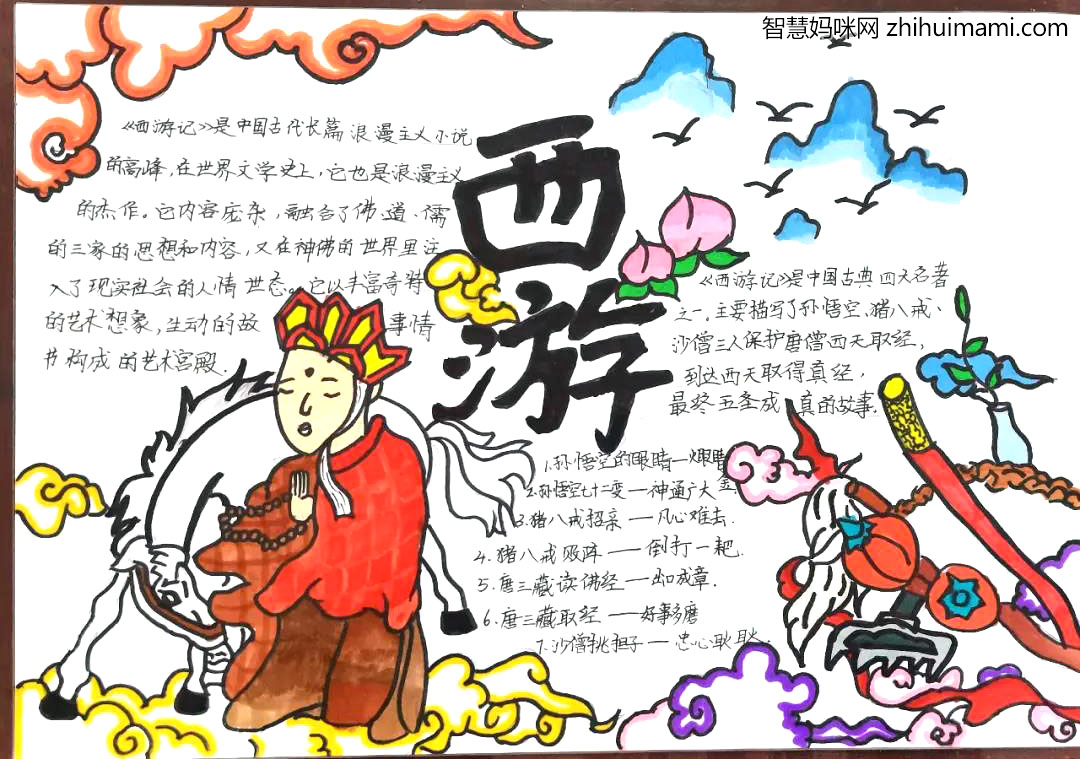 智慧妈咪网 zhihuimami.com
《西游记》是中国古代长篇浪漫主义小说
的高峰,在世界文学史上,它也是浪漫主义
的杰作。它内容庞杂,融合了佛、道、儒
的三家的思想和内容,又在神佛的世界里注
入了现实社会的人情世态。它以丰富奇特
的艺术想象,生动的故 事情
节构成的艺术宫殿.
西
游
《西游记》是中国古典四大名著
之一。主要描写了孙悟空、猪八戒、
沙僧三人保护唐僧西天取经,
到达西天取得真经,
最终五圣成 真的故事.
1.孙悟空的眼睛一火眼
金睛
2.孙悟空七十二变一神通广大
3.猪八戒招亲一凡心难去.
4.猪八戒败阵一倒打一耙.
5.唐三藏读佛经一出口成章.
6.唐三藏取经一好事多磨
7.沙僧挑担子一忠心耿耿.